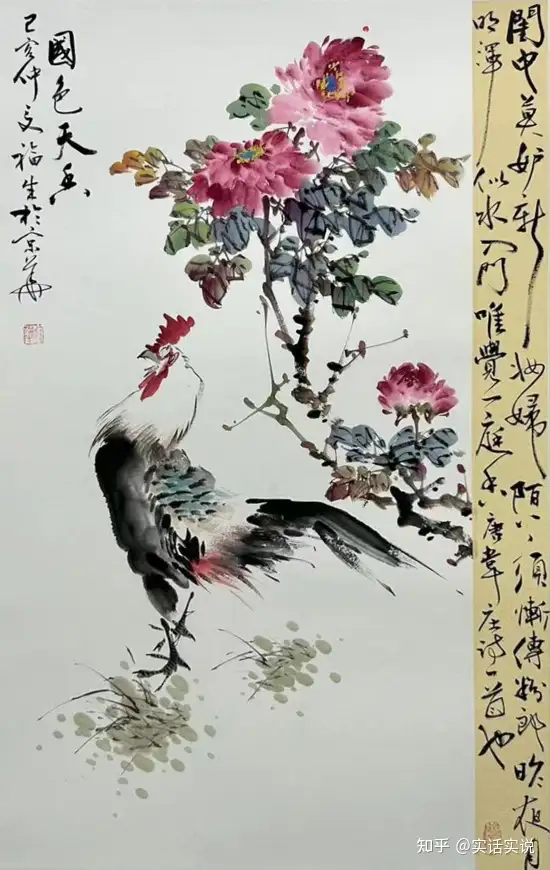 閨中莫妒新妝婦陌上須慚傅粉郎昨夜月
明渾似水入門唯覺一庭香唐韋莊詩一首也
國色天香
己亥仲夏福生於京華
知乎 @实话实说